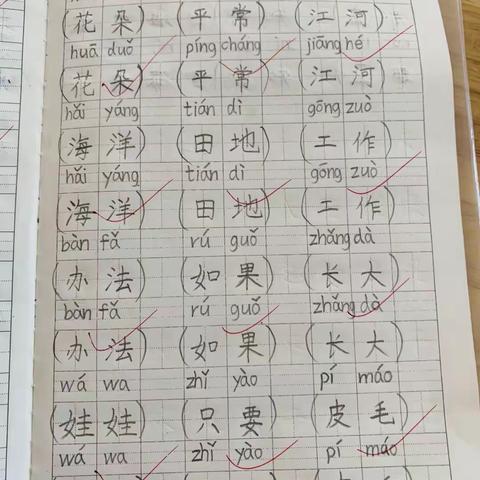 (花朵) (平常) (江河)
huā duǒ píng cháng jiāng hé
(花朵) (平常) (江河)
hǎi yáng tián dì gōng zuò
(海洋) (田地) (工作)
hǎi yáng tián dì gōng zuò
(海洋) (田地) (工作)
bàn fǎ rú guǒ zhǎng dà
(办法) (如果) (长大)
bàn fǎ rú guǒ zhǎng dà
(办法) (如果) (长大)
wá wa zhǐ yào pí máo
(娃娃) (只要) (皮毛)
wá wa zhǐ yào pí máo